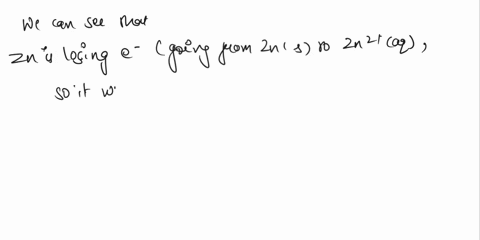 We can see that
Zn is losing e⁻ (going from Zn(s) to Zn²⁺(aq),
so it w